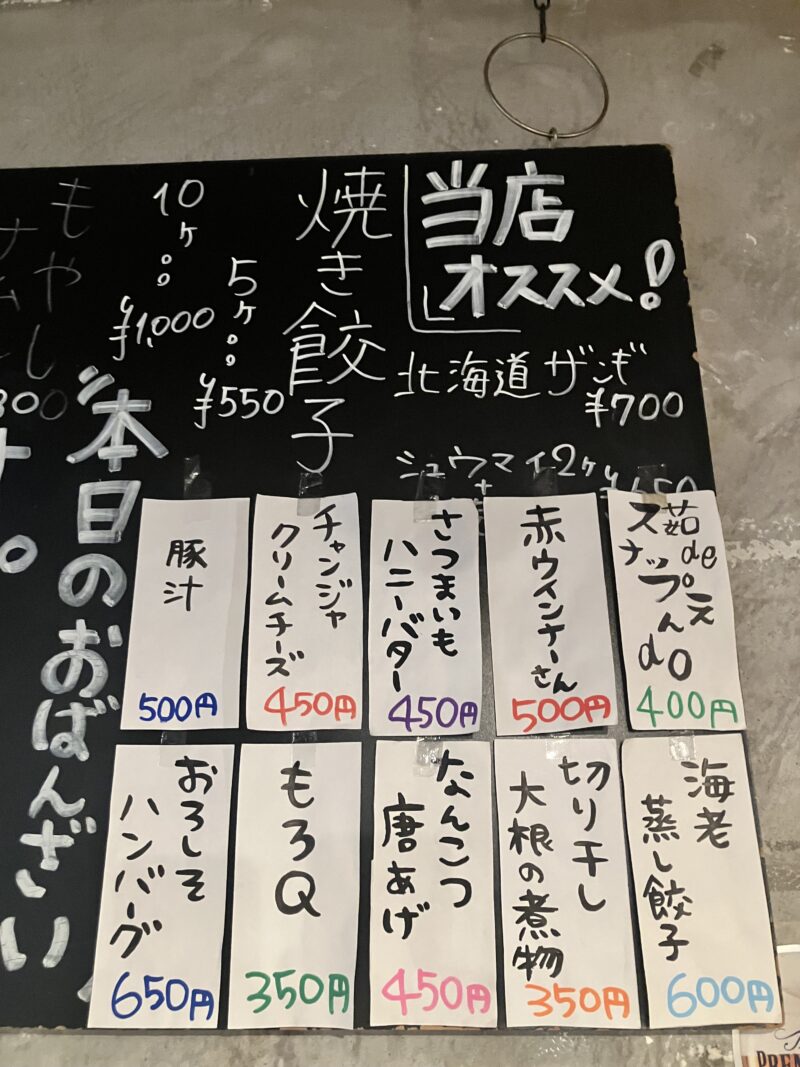 当店
オススメ!
北海道ザンギ
¥700
シュウマイ2ケ
焼き餃子
5ケ
¥550
10ケ
¥1,000
本日のおばんざい
もやし
茹de
スナップえんdo
400円
赤ウインナーさん
500円
さつまいも
ハニーバター
450円
チャンジャ
クリームチーズ
450円
豚汁
500円
海老
蒸し餃子
600円
切り干し
大根の煮物
350円
なんこつ
唐あげ
450円
もろQ
350円
おろしそ
ハンバーグ
650円